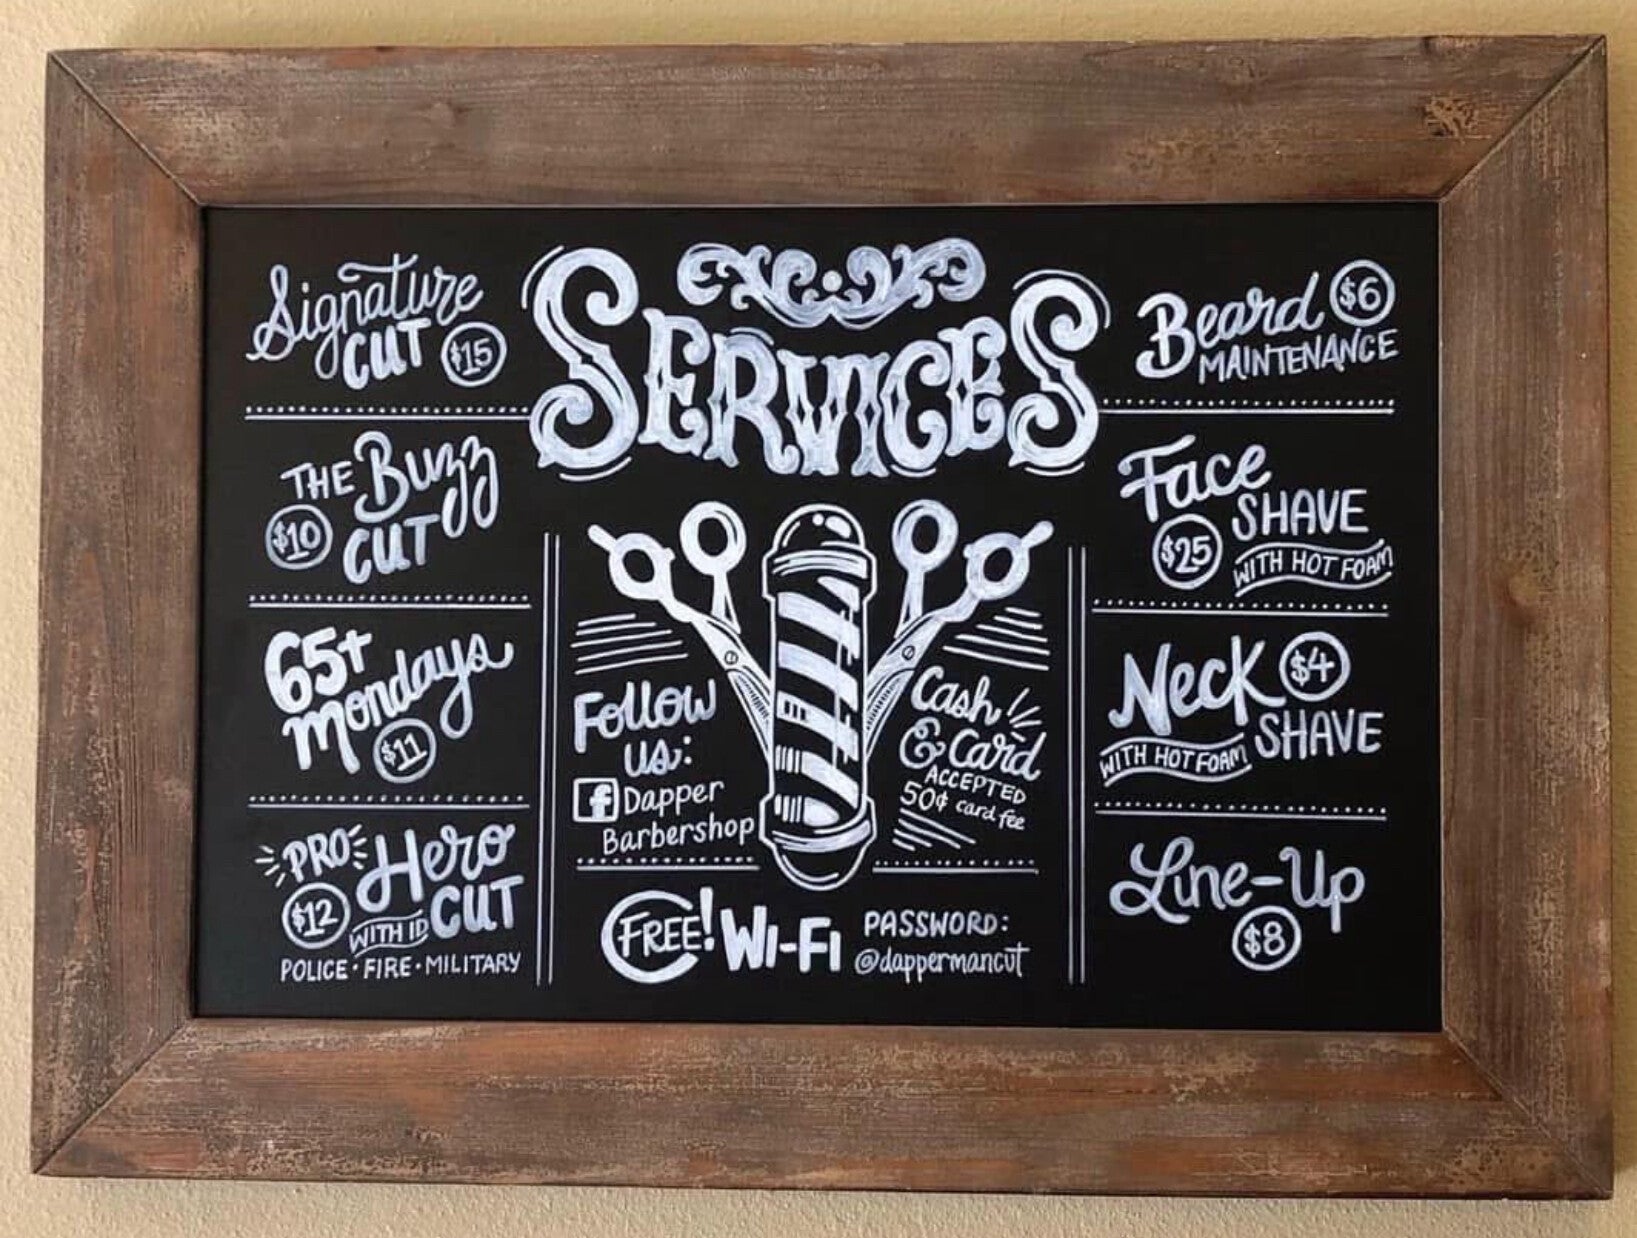 SERVICES
Signature
CUT $15
THE Buzz
$10 CUT
65+
Mondays
$11
PRO Hero
$12 WITH ID CUT
POLICE · FIRE · MILITARY
Follow
us:
f Dapper
Barbershop
Cash
& Card
ACCEPTED
50¢ card fee
FREE! Wi-Fi
PASSWORD:
@dappermancut
Beard $6
MAINTENANCE
Face
SHAVE
$25 WITH HOT FOAM
Neck $4
WITH HOT FOAM SHAVE
Line-Up
$8